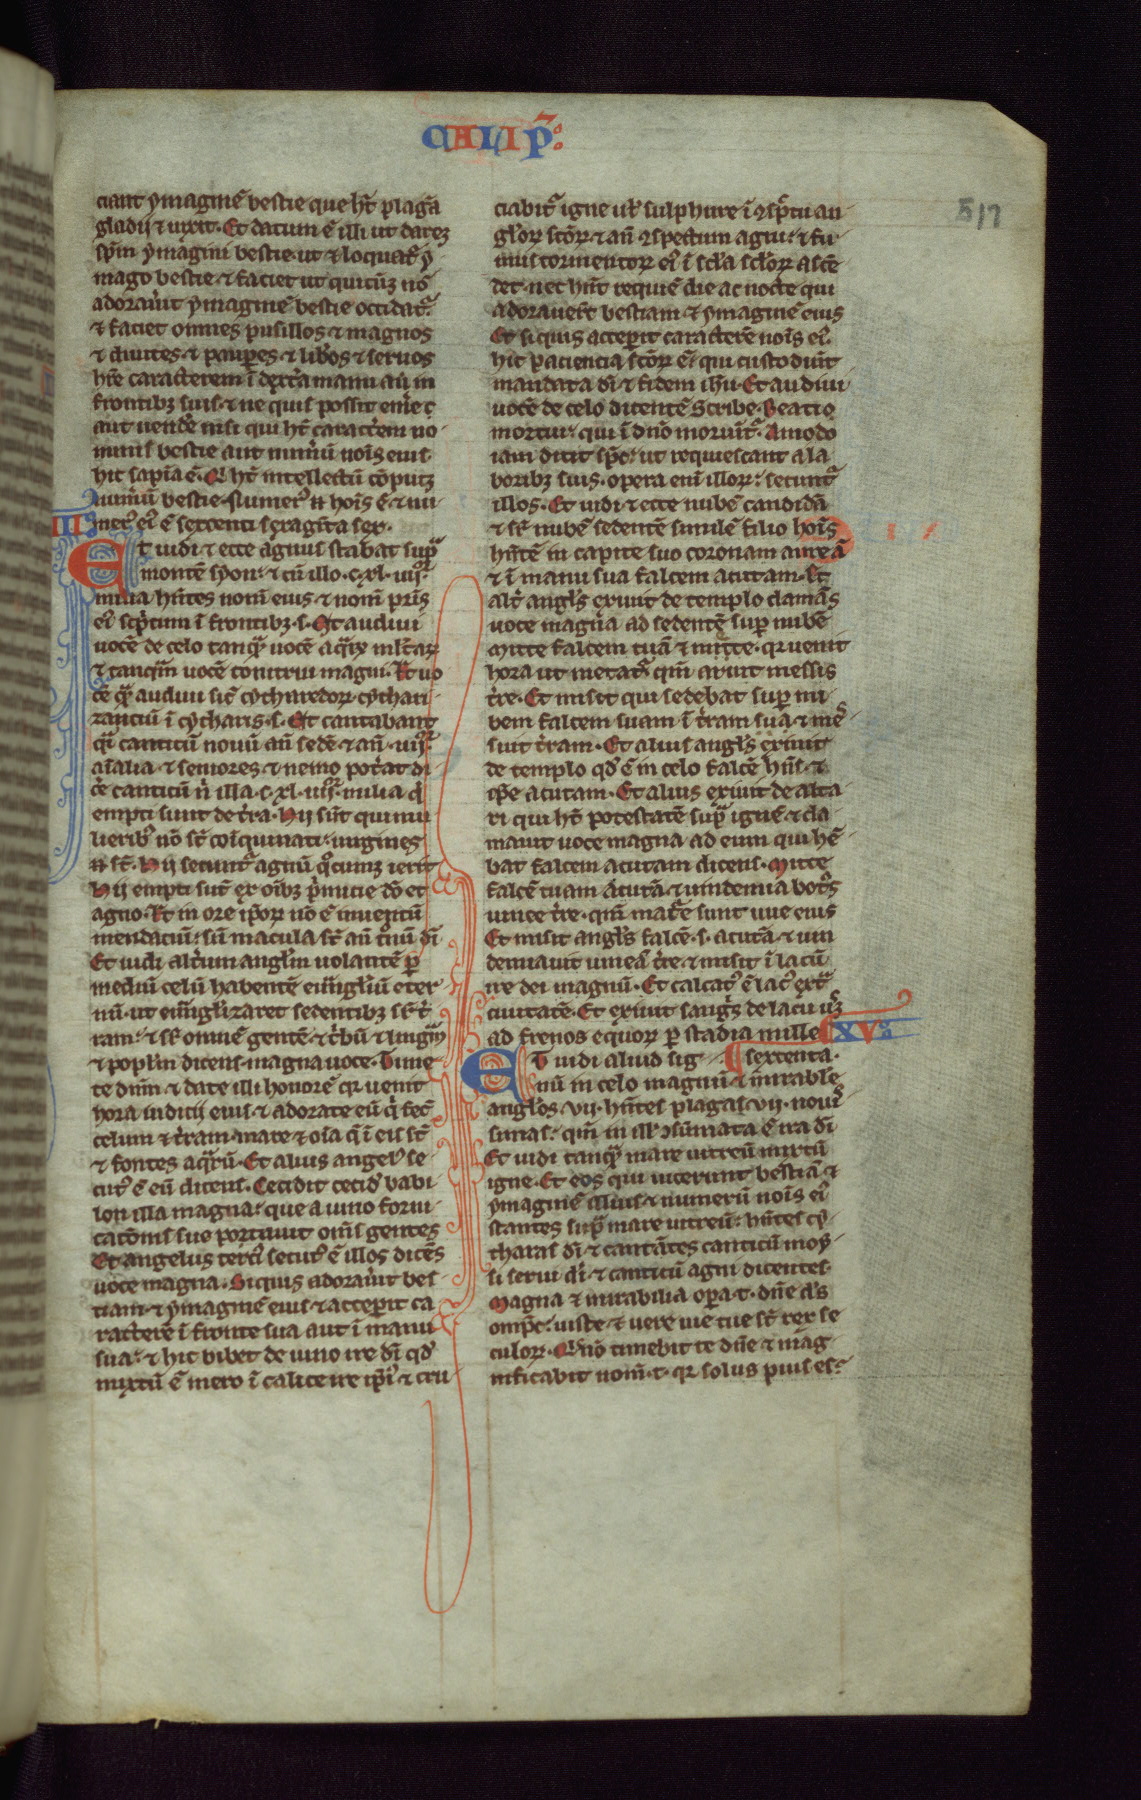 CALIP̄
517
ciant ymaginē bestie que hт̄ plagā
gladij ⁊ uixit. Et datum ē illi ut daret
sp̄m ymagini bestie ut ⁊ loquat᷑ y
mago bestie ⁊ faciet ut quicūqꝫ nō
adorau̾it ymaginē bestie occidat᷑.
⁊ faciet omnes pusillos ⁊ magnos
⁊ diuites ⁊ paup̲es ⁊ lib̾os ⁊ seruos
hr̄e caracterem ī dext̾a manu aū in
frontibꝫ suis ⁊ ne quis possit em̾e
aut uend̾e nisi qui ht̄ caract̾em no
minis bestie aut num̾ū nois eius
hic sapīa ē. Q ht̄ intellectū cōputꝫ
num̾ū bestie. Numer᷒ .n. hois ē ⁊ nu
mer᷒ ei᷒ ē sexcenti sexagīta sex.
IIII
Et uidi ⁊ ecce agnus stabat sup̄
montē syon ⁊ cū illo .c.xl.iiiior.
milia hn̄tes nom̄ eius ⁊ nom̄ pr̄is
ei᷒ sc̾ptum ī frontibꝫ .s. Et audiui
uocē de celo tanqͣ uocē aqͣꝝ ml̄taꝝ
⁊ tanqͣm uocē tonitrui magni. Et uo
cē qͣ audiui sic̄ cytharedoꝝ cythari
zantiū ī cytharis .s. Et cantabant
qͣi canticū nouū an̄ sedē ⁊ an̄ .iiiior.
aīalia ⁊ seniores ⁊ nemo pot̾at di
c̾e canticū n̾ illa .c.xl.iiiior. milia q̾
empti sunt de t̾ra. Hij sūt qui mu
lierib᷒ nō st̄ coīquinati uirgines
.n. st̄. Hij secunt᷑ agnū qͦcumqꝫ ierit
Hij empti sūt ex oībꝫ p̾mitie dō et
agno. Et in ore ip̄oꝝ nō ē inuentū
mendaciū sn̄ macula st̄ an̄ tͦnū dī
Et uidi alt̾um angl̄m uolantē p̲
mediū celū habentē euͣngl̄iū eter
nū ut euͣngl̄izaret sedentibꝫ sr̄ t̾
ram ⁊ sr̄ omnē gentē ⁊ t̾bū ⁊ linguͣ
⁊ popl̄m dicens magna uoce. Time
te dn̄m ⁊ date illi honorē qꝛ uenit
hora iudicij eius ⁊ adorate eū q̾ fec̄
celum ⁊ t̾ram mare ⁊ oīa q̄ ī eis st̄
⁊ fontes aqͣrū. Et alius angel᷒ se
cut᷒ ē eū dicens. Cecidit cecid̾ babi
lon illa magna que a uino forni
catōnis sue potauit om̄s gentes
Et angelus terci᷒ secut᷒ ē illos dicēs
uoce magna. Siquis adorau̾it bes
tiam ⁊ ymaginē eius ⁊ accep̲it ca
ract̾erē ī fronte sua aut ī manu
sua ⁊ hic bibet de uino ire dī qd̾
mixtū ē mero ī calice ire ip̄i᷒ ⁊ cru
ciabit᷑ igne ul̾ sulphure ī ꝯsp̄tu an
gl̄oꝝ sc̄oꝝ ⁊ an̄ ꝯspectum agni ⁊ fu
mus tormentoꝝ ei᷒ ī sc̄la sc̄loꝝ ascē
det nec hn̄t requiē die ac nocte qui
adorauer̄t bestiam ⁊ ymaginē eius
Et siquis accep̲it caracterē nois ei᷒.
hic paciencia sc̄oꝝ ē qui custodiūt
mandata dī ⁊ fidem ihū. Et audiui
uocē de celo dicentē. Scribe. Beati
mortui qui ī dn̄o moriūt᷑. Amodo
iam dicit sp̄c ut requiescant a la
boribꝫ suis. opera eni illoꝝ secunt᷑
illos. Et uidi ⁊ ecce nubē candidā
⁊ sr̄ nubē sedentē similē filio hois
hn̄tē in capite suo coronam aureā
⁊ ī manu sua falcem acutam. Et
alt̾ angl̄s exiuit de templo clamās
uoce magna ad sedentē sup̲ nubē
mitte falcem tuā ⁊ mitte. qꝛ uenit
hora ut metat᷑ qm̄ aruit messis
t̾re. Et misit qui sedebat sup̲ nu
bem falcem suam ī t̾ram suā ⁊ mes
suit t̾ram. Et alius angl̄s exiuit
de templo qd̾ ē in celo falcē hn̄s ⁊
ip̄e acutam. Et alius exiuit de alta
ri qui ht̄ potestatē supͣ ignē ⁊ cla
mauit uoce magna ad eum qui he
bat falcem acutam dicens. Mitte
falcē tuam acutā ⁊ uindemia bot᷒s
uinee t̾re. qm̄ mat̾e sunt uue eius
Et misit angl̄s falcē .s. acutā ⁊ uin
demiauit uineā t̾re ⁊ misit ī lacū
ire dei magnū. Et calcat᷒ ē lac᷒ extͣ
ciuitatē. Et exiuit sang᷒s de lacu usqꝫ
ad frenos equoꝝ p̲ stadia mille
XVa
sexcenta.
Et uidi aliud sig
nū in celo magnū ⁊ mirabile
angl̄os .vij. hn̄tes plagas .vij. noui
simas. qm̄ in ill̄ ꝯsūmata ē ira dī
Et uidi tanqͣ mare uitreū mixtū
igne. Et eos qui uicerunt bestiā ⁊
ymaginē illius ⁊ numerū nois ei᷒
stantes supͣ mare uitreū hn̄tes cy
tharas dī ⁊ cantātes canticū moy
si serui dī ⁊ canticū agni dicentes
Magna ⁊ mirabilia opa .t. dn̄e d̄s
omp̄c. iuste ⁊ uere uie tue st̄ rex se
culoꝝ. Q̾s nō timebit te dn̄e ⁊ mag
nificabit nom̄ .t. qꝛ solus pius es